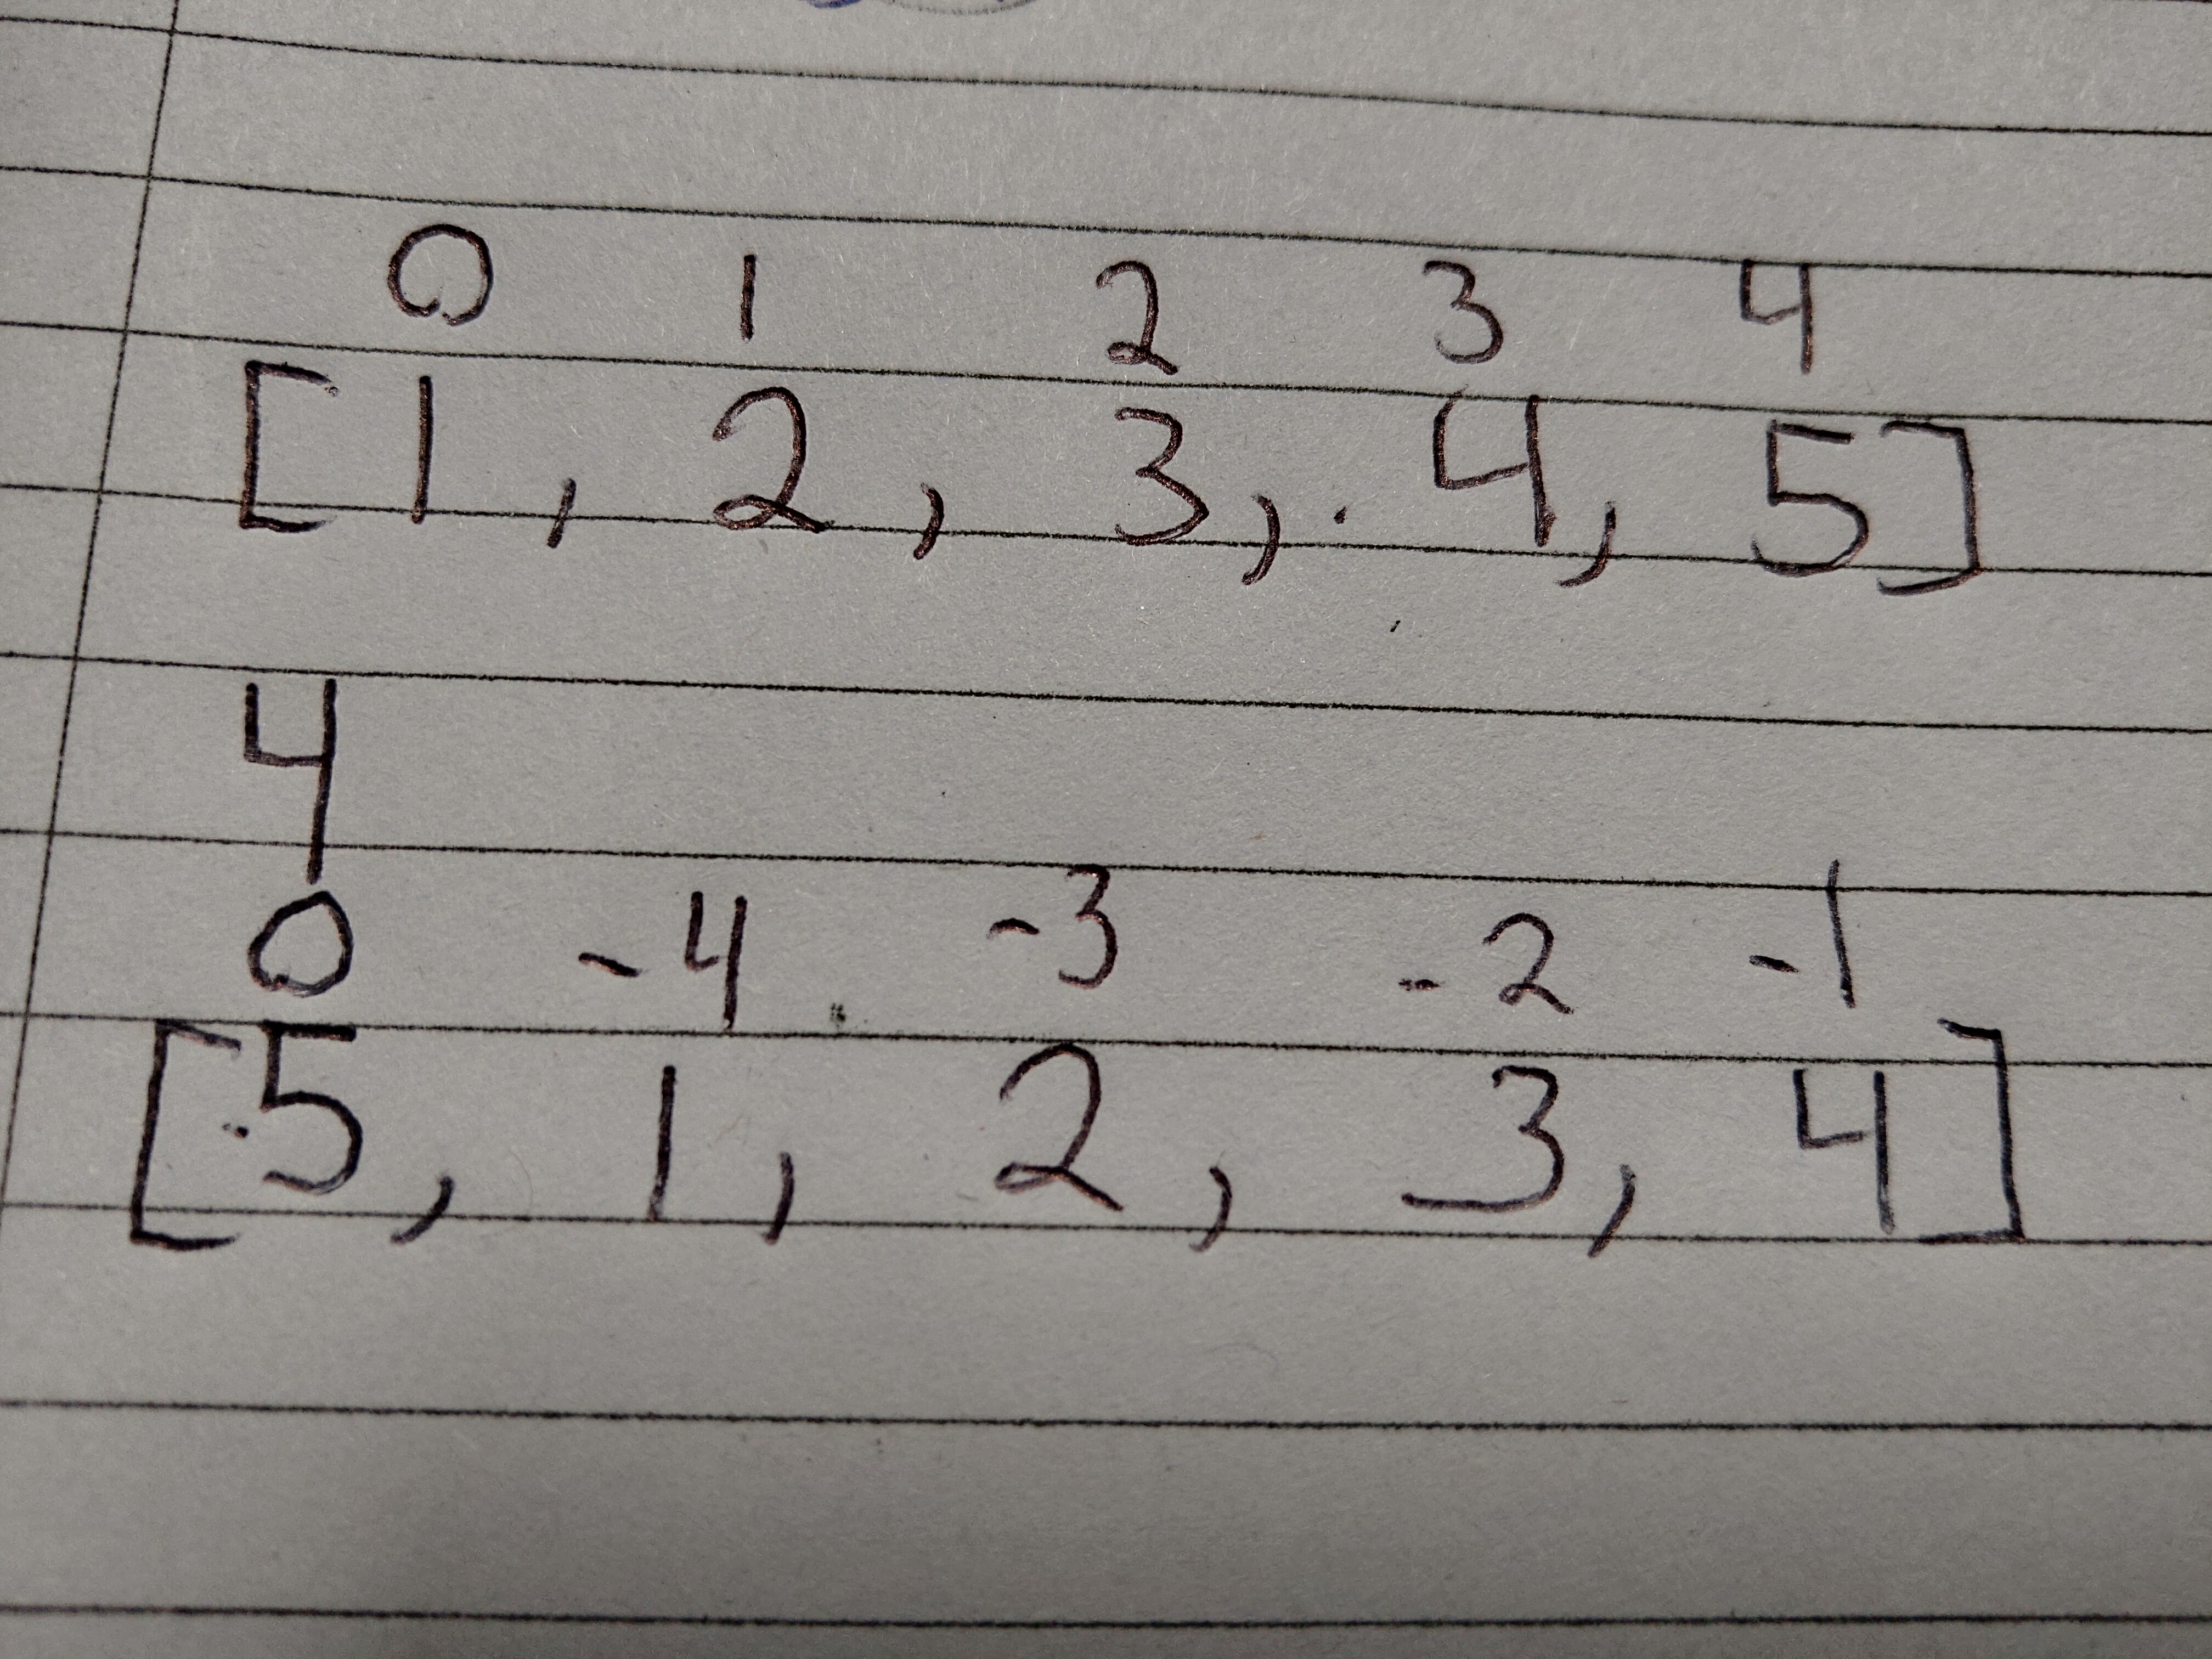 0 1 2 3 4
[1, 2, 3, 4, 5]
4
0 -4 -3 -2 -1
[5, 1, 2, 3, 4]